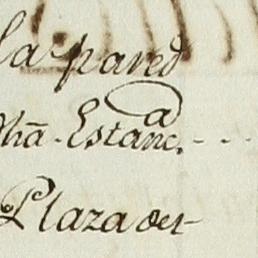 la pared
dhã. Estanc.ª - - -
Plaza del